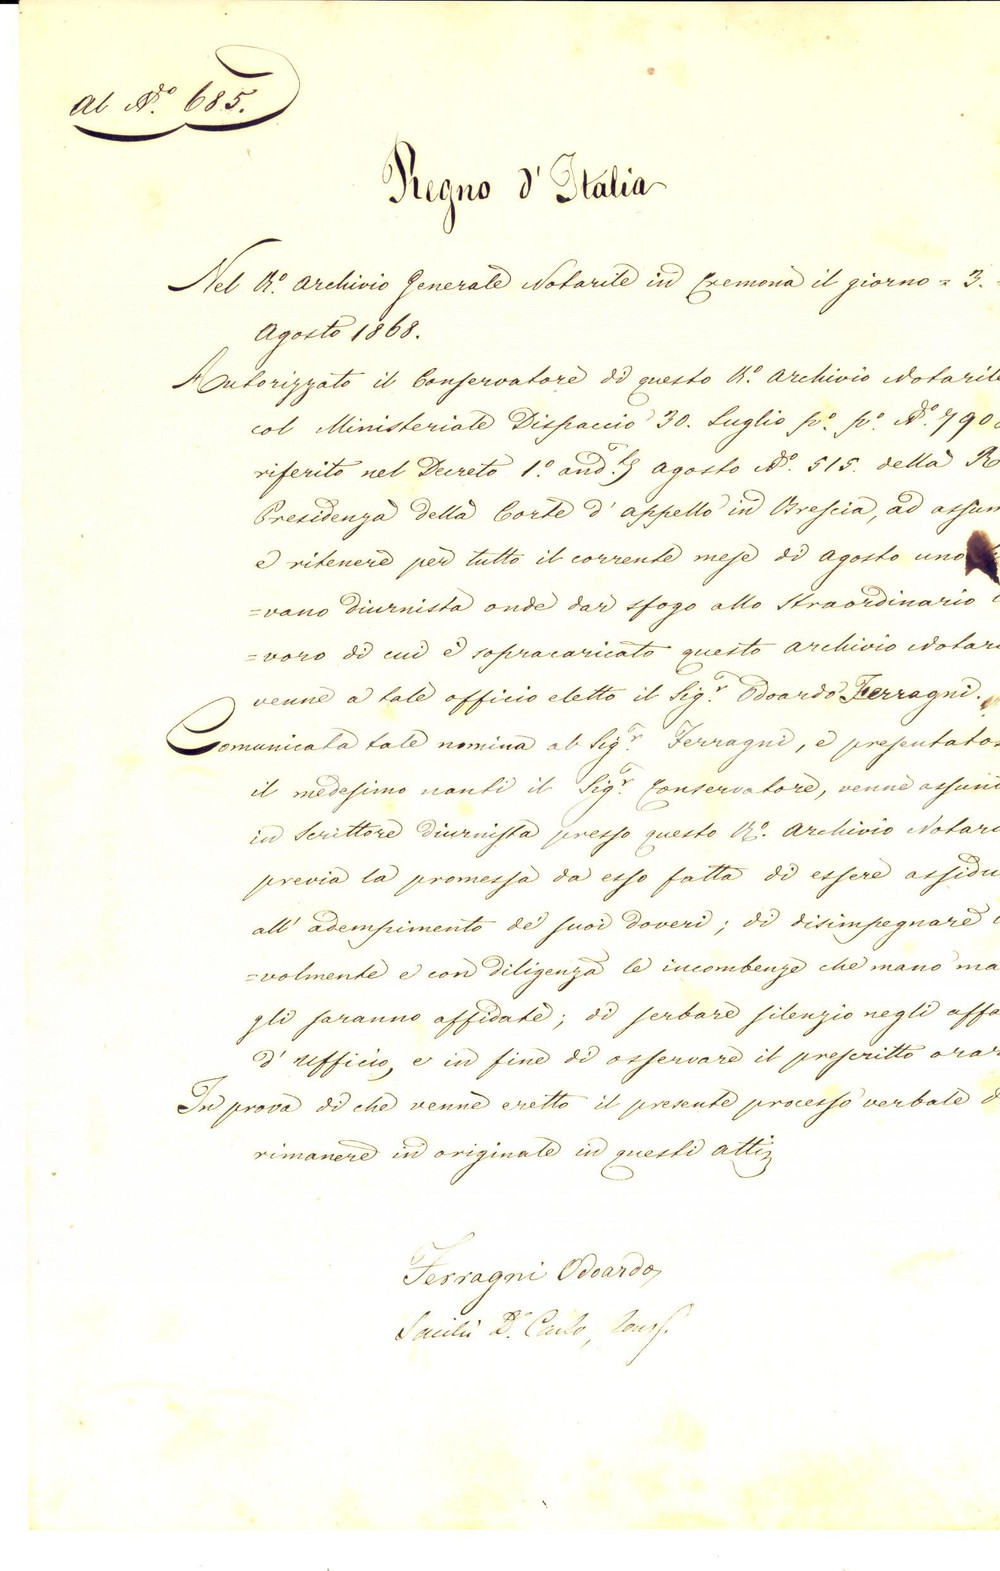 Al N.º 685.
Regno d'Italia
Nel R.º Archivio Generale Notarile in Cremona il giorno = 3. =
Agosto 1868.
Autorizzato il Conservatore di questo R.º Archivio Notarile
col Ministeriale Dispaccio 30. Luglio p.º p.º N.º 790
riferito nel Decreto 1.º and.e Agosto N.º 515. della R
Presidenza della Corte d'appello in Brescia, ad assum
e ritenere per tutto il corrente mese di Agosto uno
=vano diurnista onde dar sfogo allo straordinario
=voro di cui è sopracaricato questo Archivio Notari
venne a tale officio eletto il Sig.r Odoardo Ferragni.
Comunicata tale nomina al Sig.r Ferragni, e presentatos
il medesimo nanti il Sig.r Conservatore, venne assun
in Scrittore diurnista presso questo R.º Archivio Notari
previa la promessa da esso fatta di essere assidu
all'adempimento de' suoi doveri; di disimpegnare
=volmente e con diligenza le incombenze che mano ma
gli saranno affidate; di serbare silenzio negli affa
d'Ufficio, e in fine di osservare il prescritto orar
In prova di che venne eretto il presente processo verbale d
rimanere in originale in questi atti
Ferragni Odoardo
D.r Carlo, Cons.